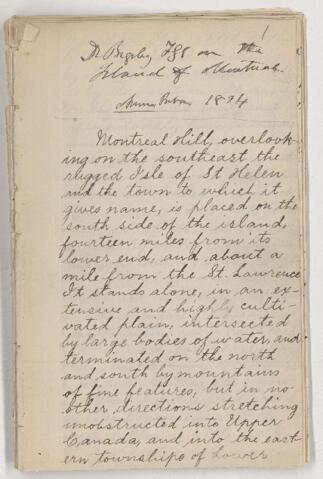 1
Dr Bigsby FGS on the
Island of Montreal
1824
Montreal Hill, overlook-
ing on the southeast the
rugged Isle of St Helen
and the town to which it
gives name, is placed on the
south side of the island,
fourteen miles from its
lower end, and about a
mile from the St. Lawrence
It stands alone, in an ex-
tensive and highly culti-
vated plain, intersected
by large bodies of water, and
terminated on the north
and south by mountains
of fine features, but in no
other directions stretching
unobstructed into Upper
Canada, and into the east-
ern townships of Lower